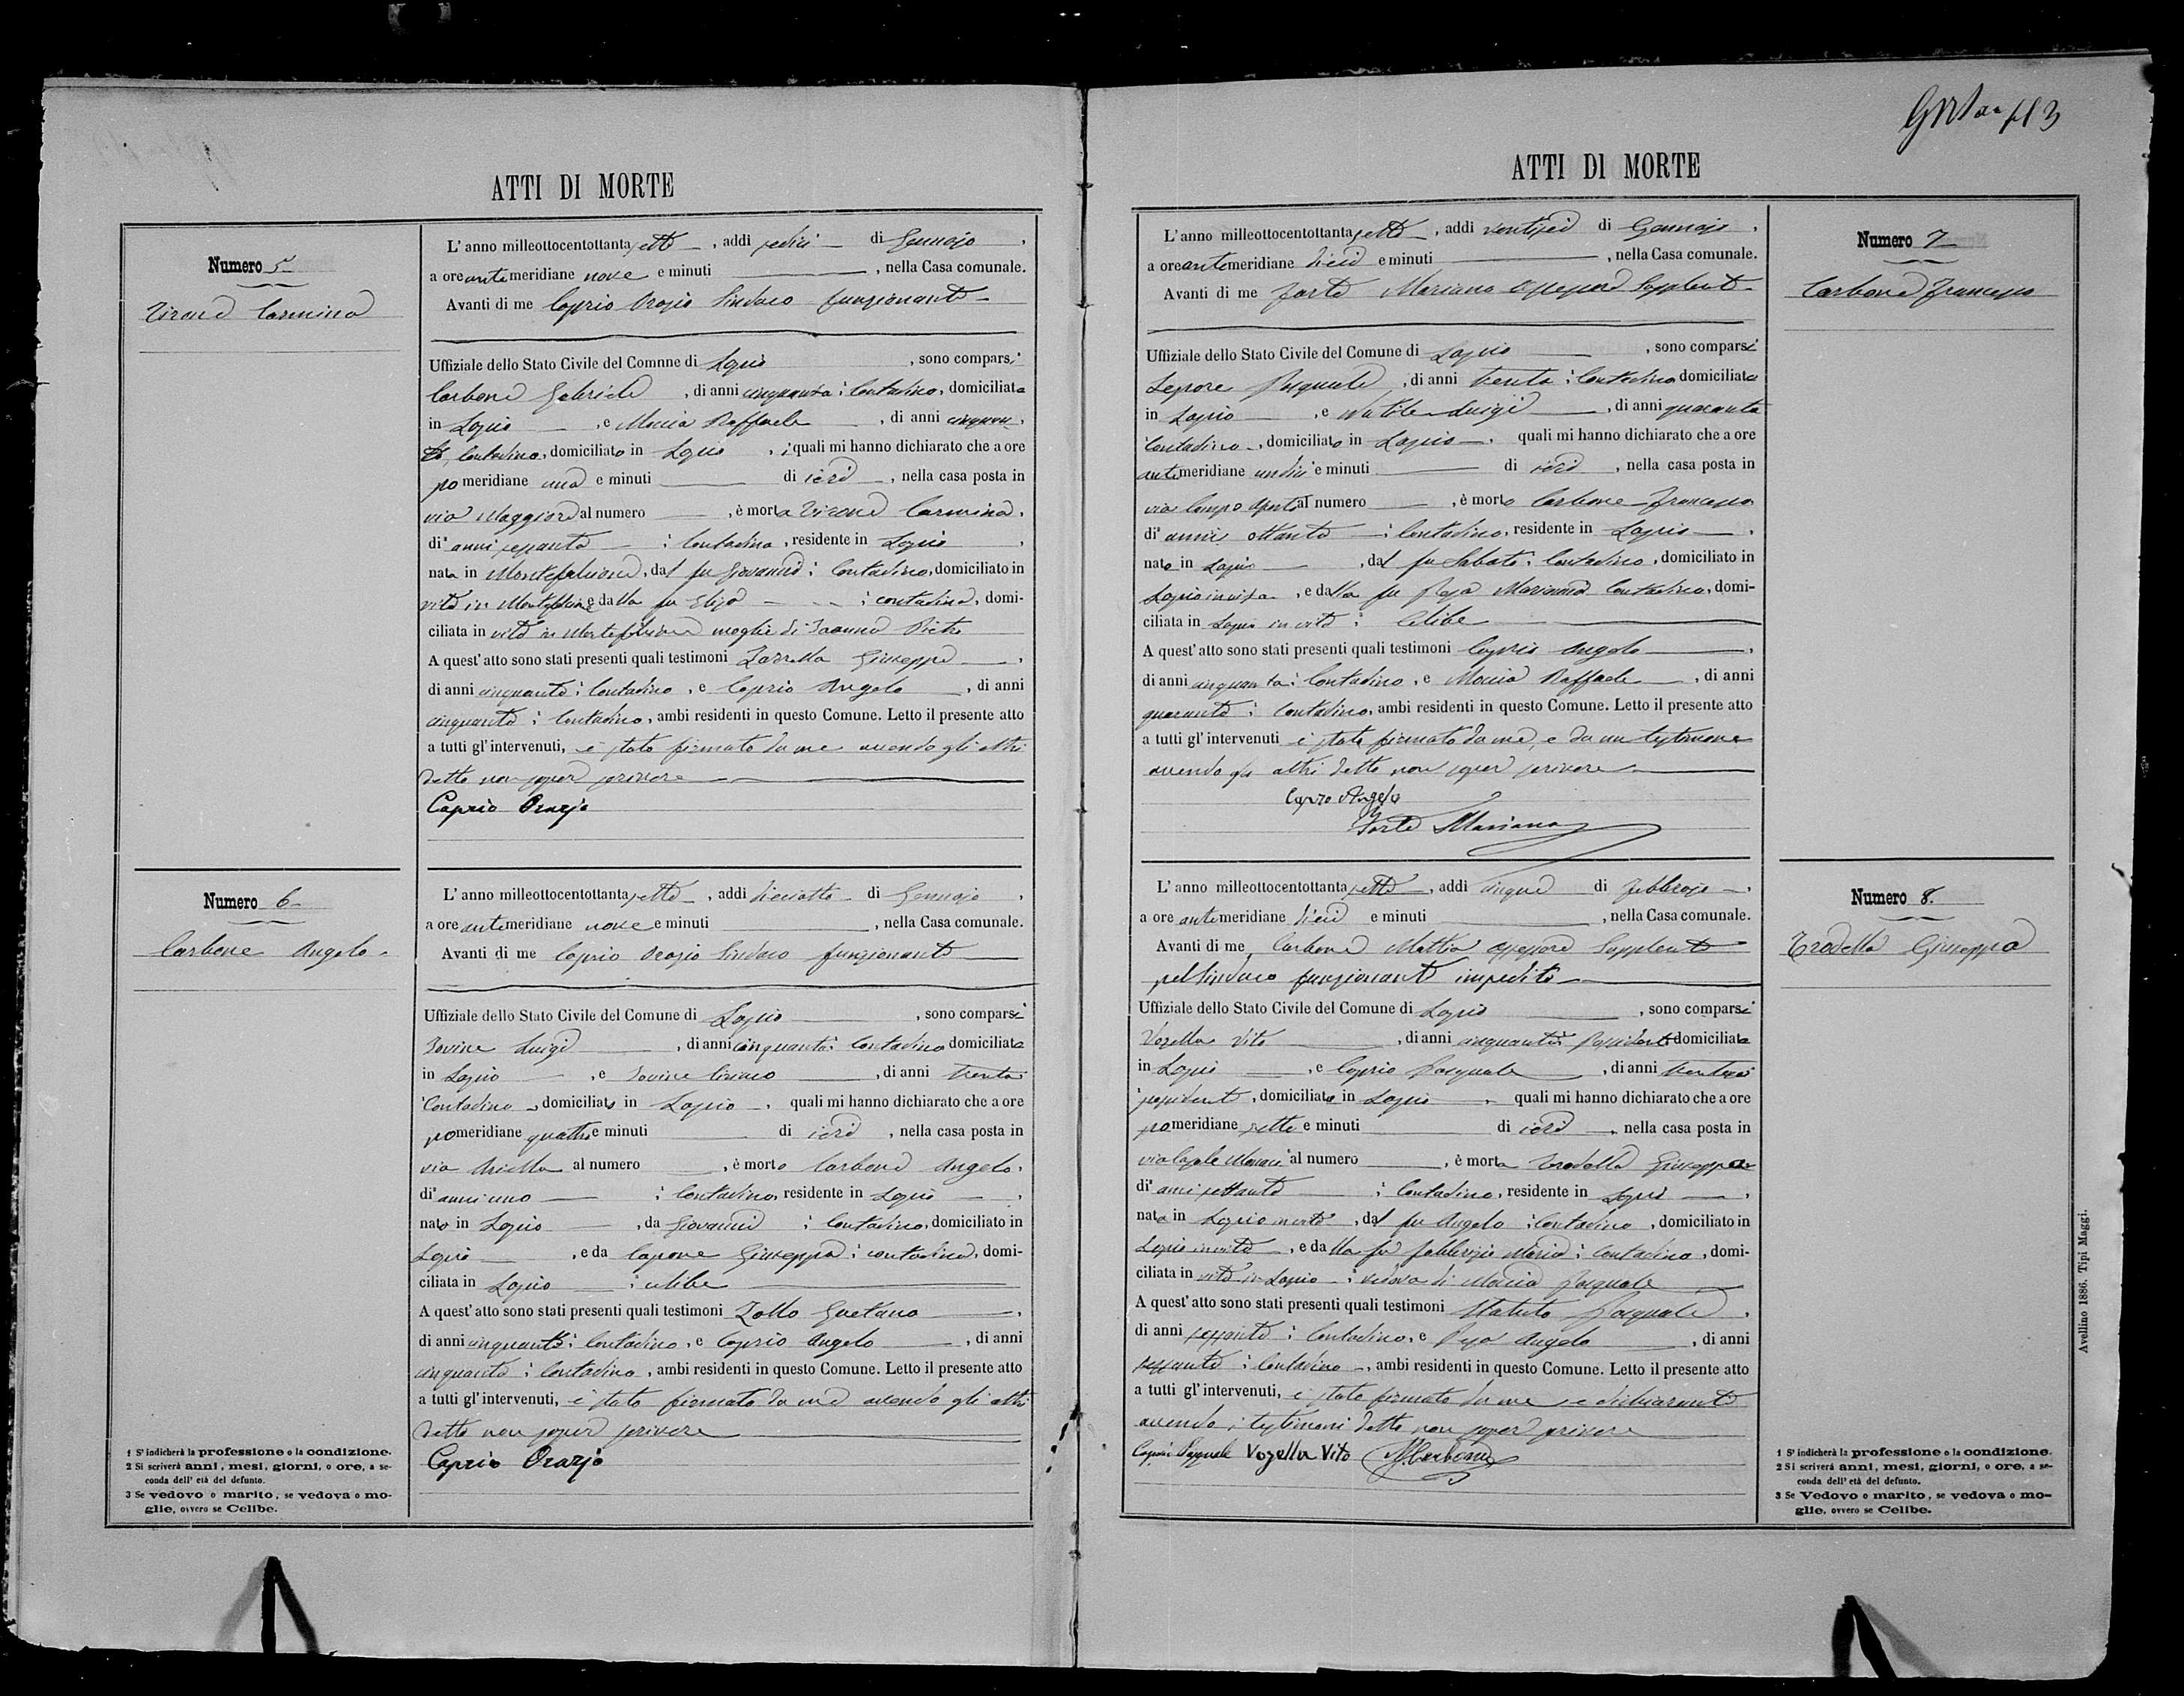 ATTI DI MORTE
Numero 5
Tirone Carmina
L' anno milleottocentottantasette, addì sedici di Gennajo,
a ore antemeridiane nove e minuti , nella Casa comunale.
Avanti di me Caprio Orazio Sindaco funzionante
Uffiziale dello Stato Civile del Comnne di Lapio , sono comparsi
Carbone Gabriele , di anni cinquanta; Contadino, domiciliato
in Lapio , e Moccia Raffaele , di anni cinquan
ta, Contadino, domiciliato in Lapio , i quali mi hanno dichiarato che a ore
pomeridiane una e minuti di ieri , nella casa posta in
via Maggiore al numero , è morta Tirone Carmina,
di anni sessanta ; Contadina, residente in Lapio ,
nata in Montefalcione, dal fu Giovanni; Contadino, domiciliato in
vita in Montefalcione e dalla fu Elisa ; contadina, domi-
ciliata in vita in Montefalcione moglie di Ioanna Pietro
A quest' atto sono stati presenti quali testimoni Zarrella Giuseppe ,
di anni cinquanta; Contadino, e Caprio Angelo , di anni
cinquanta; Contadino, ambi residenti in questo Comune. Letto il presente atto
a tutti gl' intervenuti, è stato firmato da me avendo gli altri
detto non saper scrivere
Caprio Orazio
Numero 6
Carbone Angelo
L' anno milleottocentottantasette, addì diciotto di Gennajo,
a ore antemeridiane nove e minuti , nella Casa comunale.
Avanti di me Caprio Orazio Sindaco funzionante
Uffiziale dello Stato Civile del Comune di Lapio , sono comparsi
Iovine Luigi , di anni cinquanta; Contadino domiciliato
in Lapio , e Iovine Ciriaco , di anni trenta
Contadino, domiciliato in Lapio , quali mi hanno dichiarato che a ore
pomeridiane quattro e minuti di ieri , nella casa posta in
via Ariella al numero , è morto Carbone Angelo,
di anni uno ; Contadino, residente in Lapio ,
nato in Lapio , da Giovanni ; Contadino, domiciliato in
Lapio , e da Capone Giuseppa; contadina, domi-
ciliata in Lapio ; celibe
A quest' atto sono stati presenti quali testimoni Zollo Gaetano ,
di anni cinquanta; Contadino, e Caprio Angelo , di anni
cinquanta; Contadino, ambi residenti in questo Comune. Letto il presente atto
a tutti gl' intervenuti, è stato firmato da me avendo gli altri
detto non saper scrivere
Caprio Orazio
1 S' indicherà la professione o la condizione.
2 Si scriverà anni, mesi, giorni, o ore, a se-
conda dell' età del defunto.
3 Se vedovo o marito, se vedova o mo-
glie, ovvero se Celibe.
ATTI DI MORTE
L' anno milleottocentottantasette, addì ventisei di Gennajo,
a ore antemeridiane dieci e minuti , nella Casa comunale.
Avanti di me Forte Mariano Assessore Supplente
Uffiziale dello Stato Civile del Comune di Lapio , sono comparsi
Lepore Pasquale , di anni trenta; Contadino domiciliato
in Lapio , e Luigi , di anni quaranta
Contadino, domiciliato in Lapio , quali mi hanno dichiarato che a ore
antemeridiane undici e minuti di ieri , nella casa posta in
via Campo Aperto al numero , è morto Carbone Francesco
di anni ottanta ; Contadino, residente in Lapio ,
nato in Lapio , dal fu Sabato; Contadino, domiciliato in
Lapio in vita , e dalla fu Rosa Marianna Contadina, domi-
ciliata in Lapio in vita; Celibe
A quest' atto sono stati presenti quali testimoni Caprio Angelo ,
di anni cinquanta; Contadino, e Moccia Raffaele , di anni
quaranta; Contadino, ambi residenti in questo Comune. Letto il presente atto
a tutti gl' intervenuti è stato firmato da me, e da un testimone
avendo gli altri detto non saper scrivere
Caprio Angelo
Forte Mariano
Numero 7
Carbone Francesco
L' anno milleottocentottantasette, addì cinque di Febbrajo ,
a ore antemeridiane dieci e minuti , nella Casa comunale.
Avanti di me Carbone Mattia Assessore Supplente
pel Sindaco funzionante impedito
Uffiziale dello Stato Civile del Comune di Lapio , sono comparsi
Vozella Vito , di anni cinquanta; Possidente domiciliato
in Lapio , e Caprio Pasquale , di anni trentasei
possidente, domiciliato in Lapio , quali mi hanno dichiarato che a ore
pomeridiane sette e minuti di ieri , nella casa posta in
via Casale Monaci al numero , è morta Trodella Giuseppa
di anni settanta ; Contadina, residente in Lapio ,
nata in Lapio in vita , dal fu Angelo; Contadino , domiciliato in
Lapio in vita , e dalla fu Febbrizio Maria; Contadina, domi-
ciliata in vita in Lapio ; vedova di Moccia Pasquale
A quest' atto sono stati presenti quali testimoni Statuto Pasquale ,
di anni sessanta; Contadino, e Rosa Angelo , di anni
sessanta; Contadino, ambi residenti in questo Comune. Letto il presente atto
a tutti gl' intervenuti, è stato firmato da me e dichiaranti
avendo i testimoni detto non saper scrivere
Caprio Pasquale Vozella Vito M Carbone
Numero 8.
Trodella Giuseppa
1 S' indicherà la professione o la condizione.
2 Si scriverà anni, mesi, giorni, o ore, a se-
conda dell' età del defunto.
3 Se Vedovo o marito, se vedova o mo-
glie, ovvero se Celibe.
Avellino 1886. Tipi Maggi.